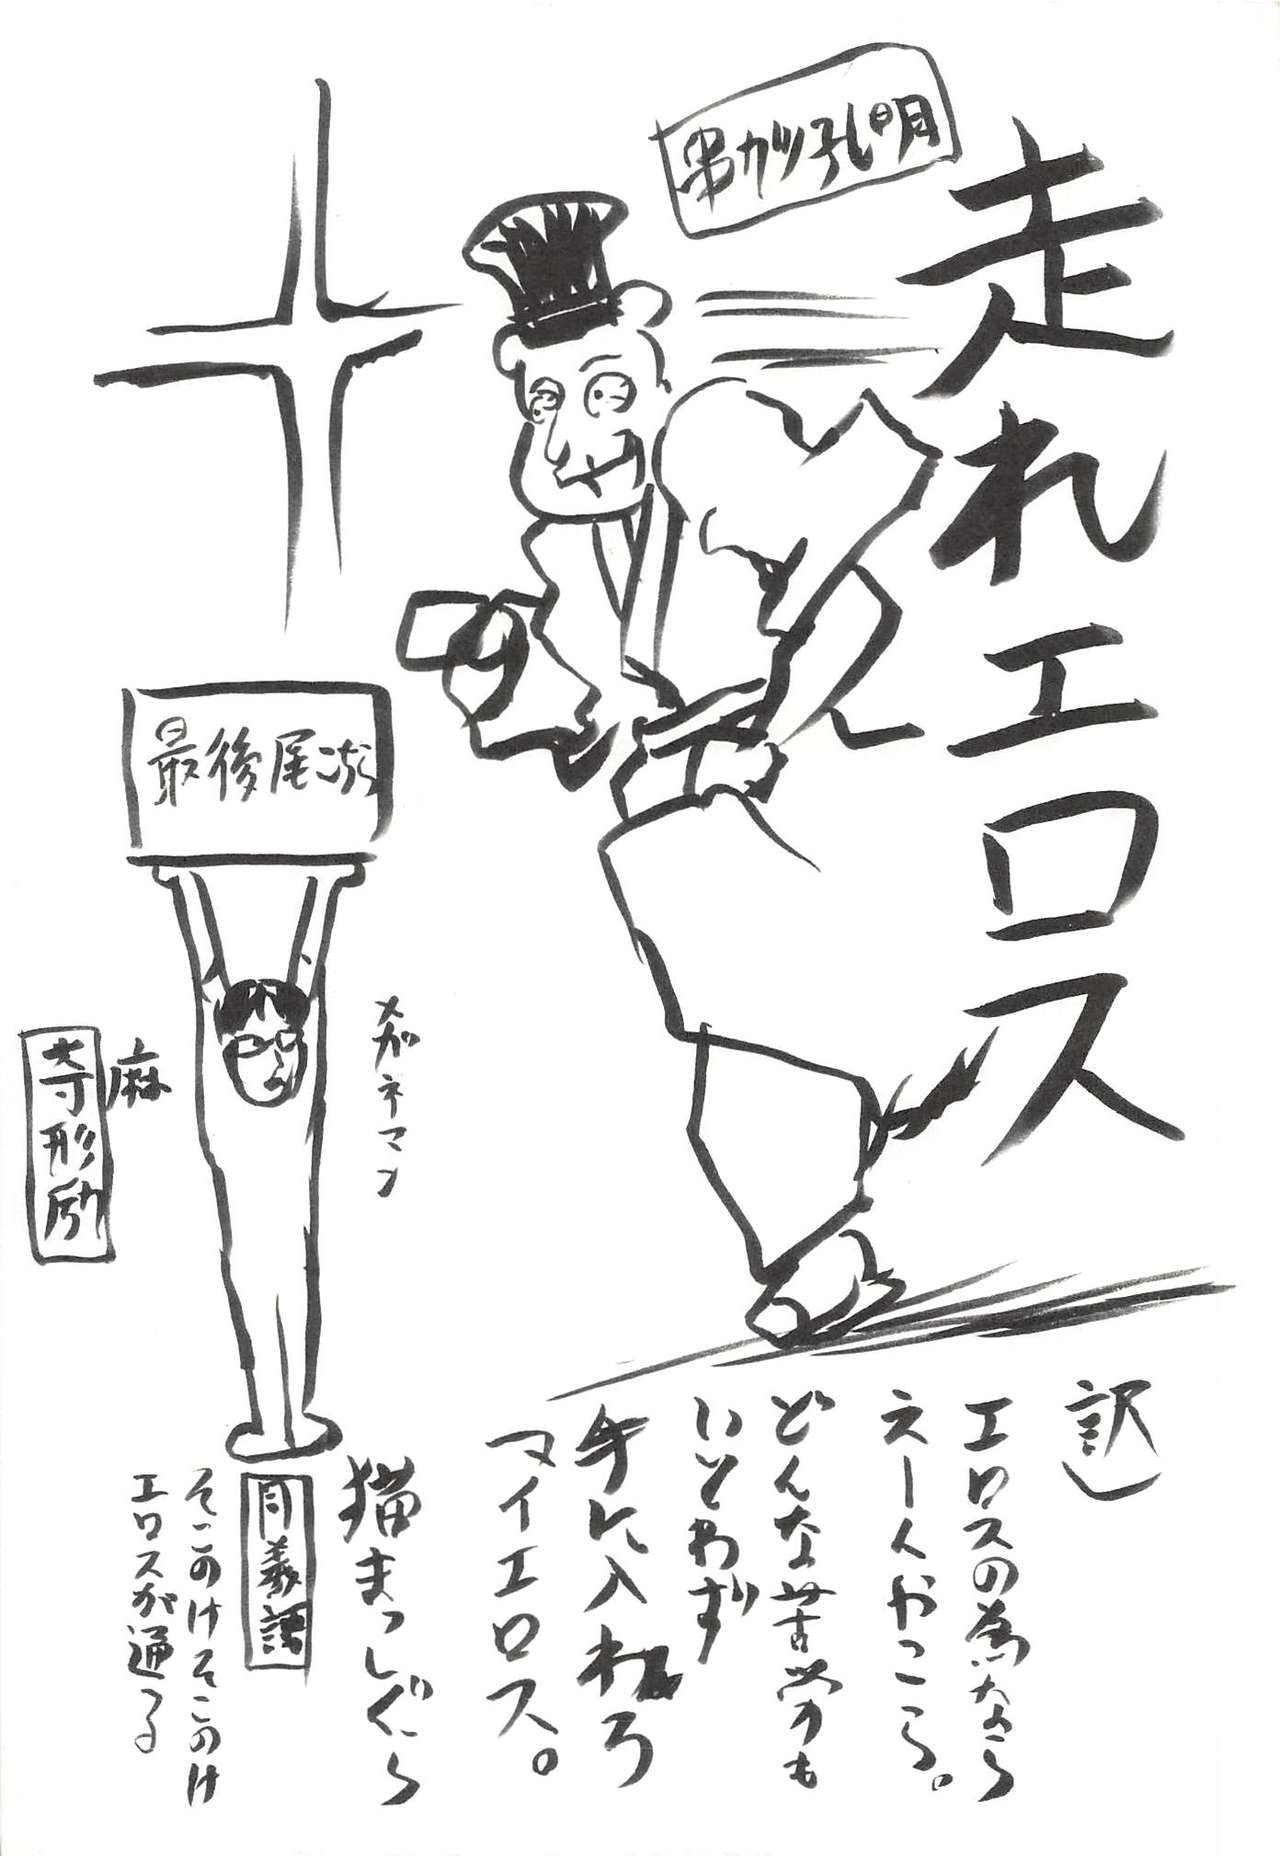 走れエロス
串カツ孔明
訳)
エロスの為なら
えーんやこら。
どんな苦労も
いとわず
手に入れろ
マイエロス。
猫まっしぐら
同義語
そこのけそこのけ
エロスが通る
最後尾
メガネマン
麻
寺形励